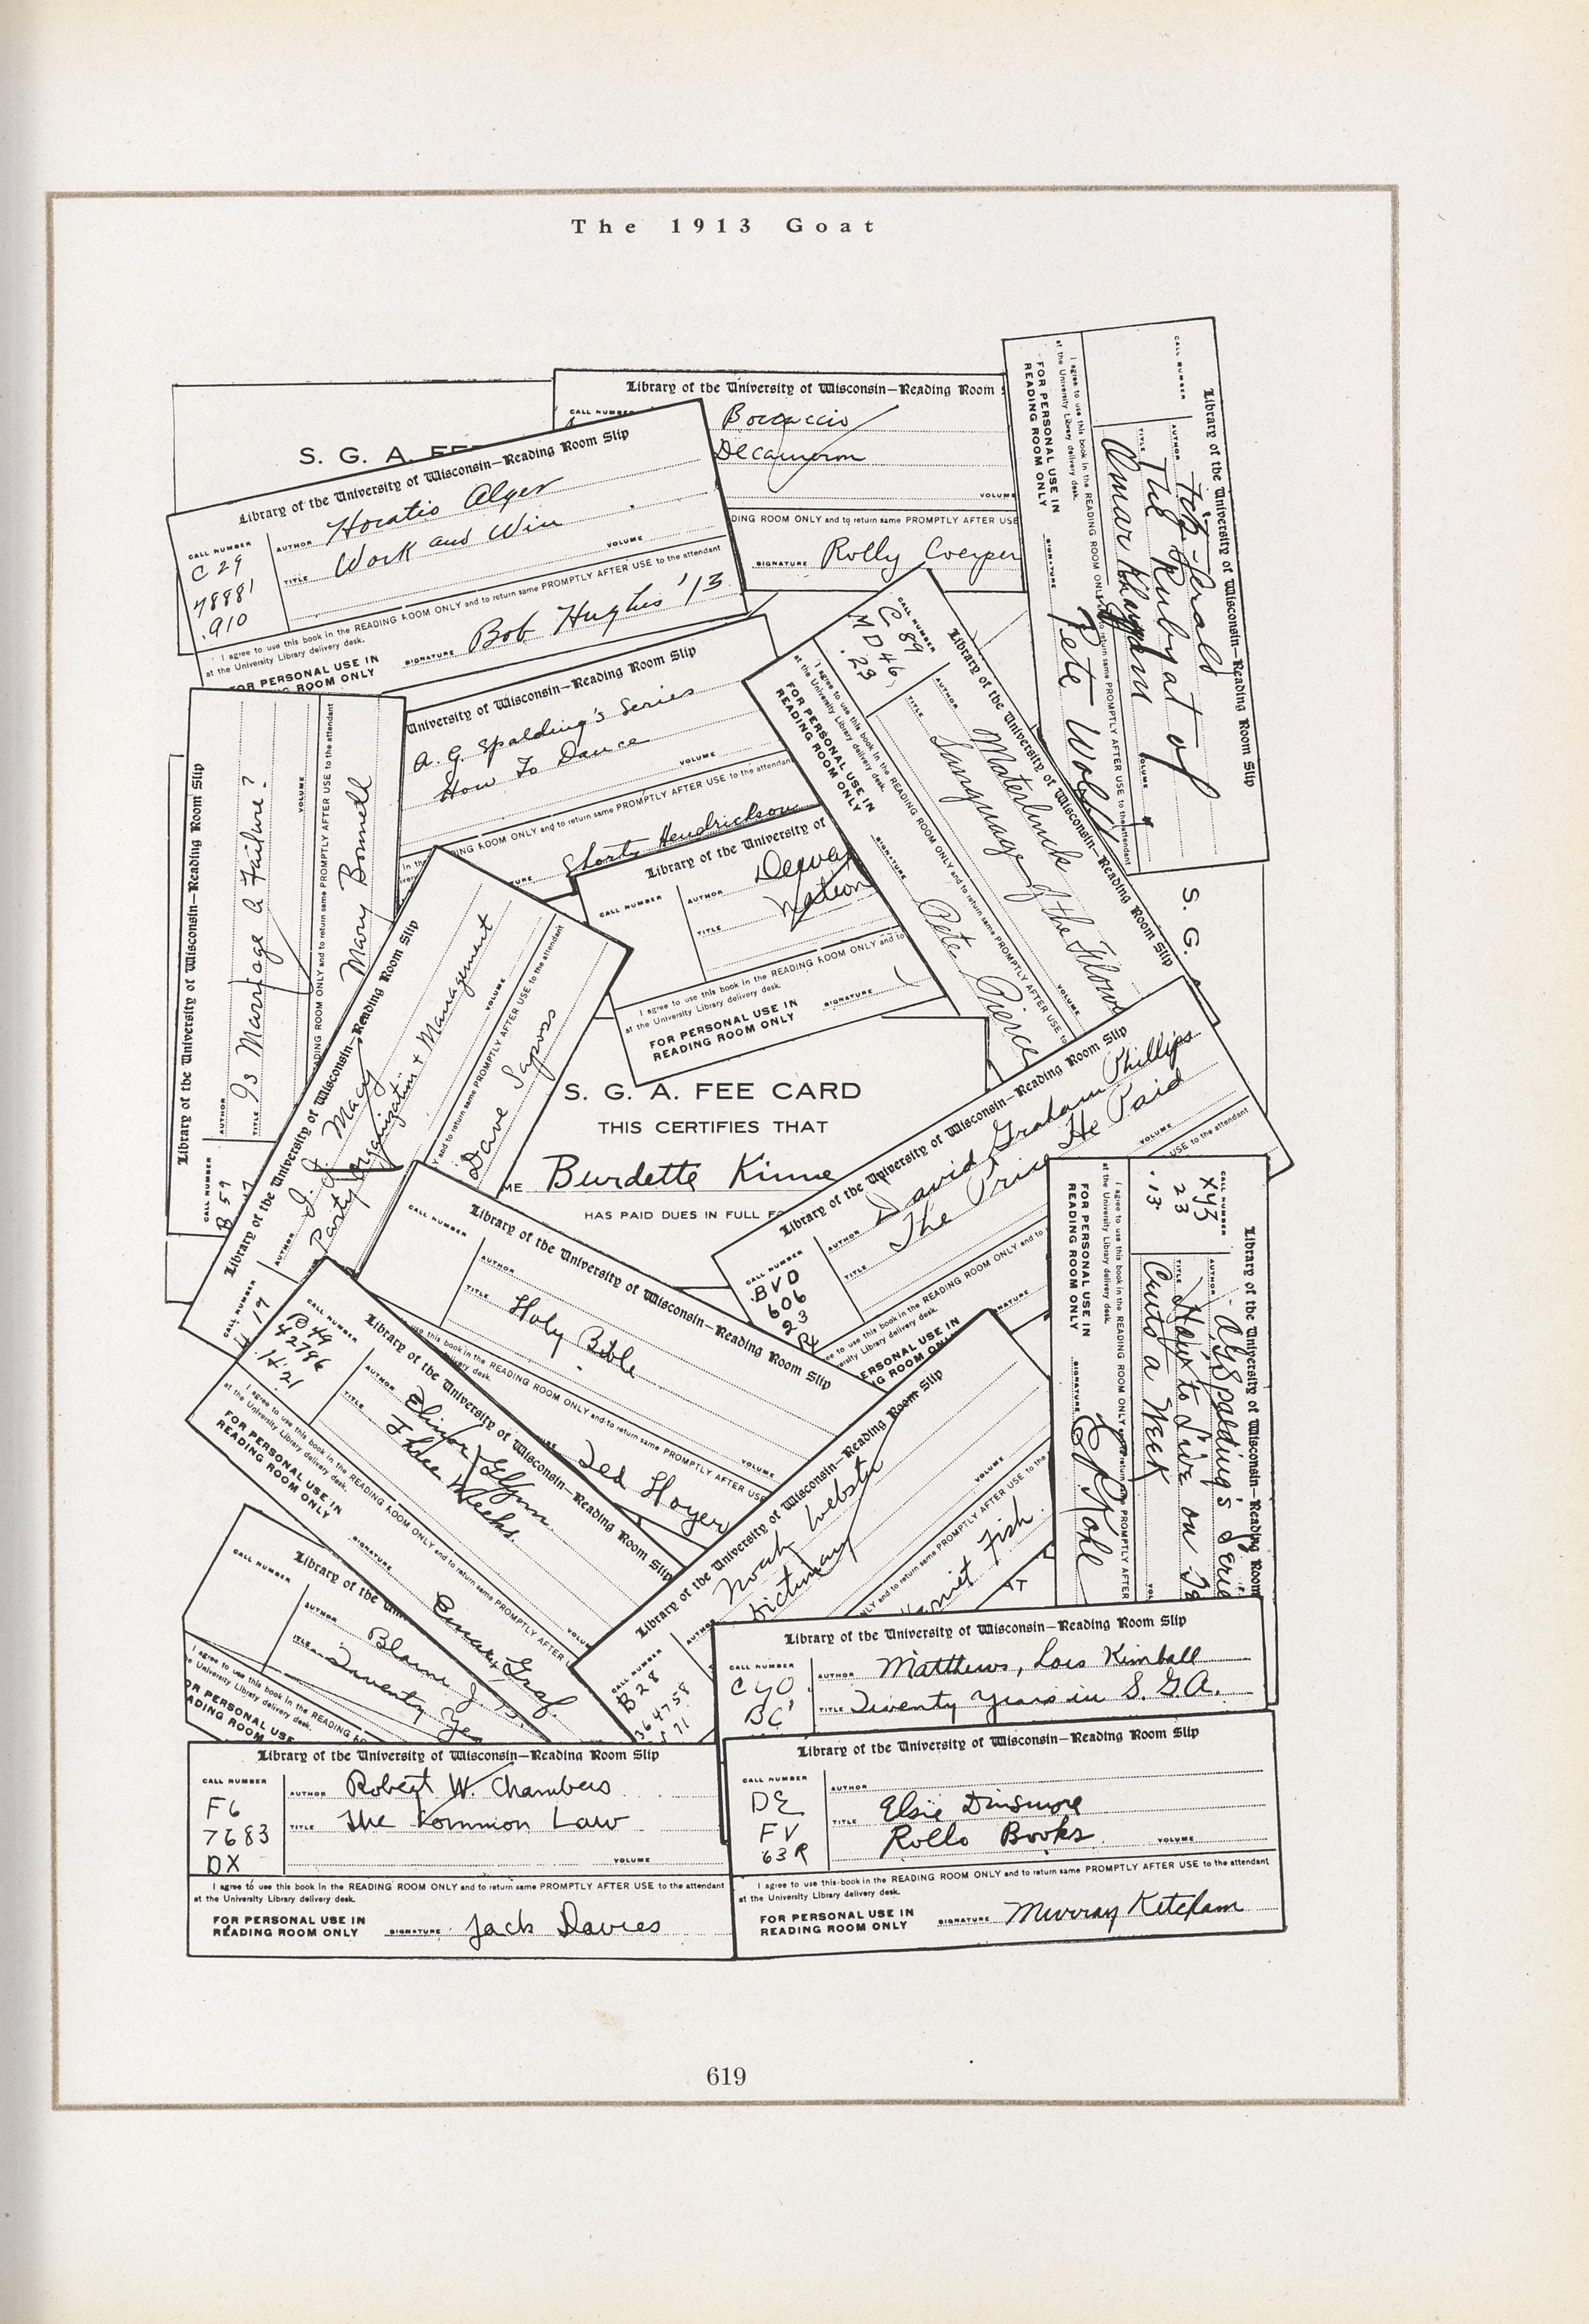 The 1913 Goat
S. G. A. FE
Library of the University of Wisconsin—Reading Room
CALL NUMBER
Boccaccio
Decameron
VOLUME
DING ROOM ONLY and to return same PROMPTLY AFTER USE
SIGNATURE Rolly Coerper
Library of the University of Wisconsin—Reading Room Slip
CALL NUMBER
C 29
78881
.910
AUTHOR Horatio Alger
TITLE Work and Win
VOLUME
I agree to use this book in the READING ROOM ONLY and to return same PROMPTLY AFTER USE to the attendant
at the University Library delivery desk.
FOR PERSONAL USE IN
ROOM ONLY
SIGNATURE Bob Hughes '13
Library of the University of Wisconsin—Reading Room Slip
CALL NUMBER
AUTHOR
TITLE The Rubyat of
Omar Khayyam
VOLUME
I agree to use this book in the READING ROOM ONLY and to return same PROMPTLY AFTER USE to the attendant
at the University Library delivery desk.
FOR PERSONAL USE IN
READING ROOM ONLY
SIGNATURE Pete Wolff
University of Wisconsin—Reading Room Slip
A. G. Spalding's Series
How To Dance
VOLUME
ONLY and to return same PROMPTLY AFTER USE to the attendant
Shorty Hendrickson
Library of the University of Wisconsin—Reading Room Slip
CALL NUMBER
C 89
MD 46,
.23
AUTHOR Materlinck
TITLE Language of the Flow
VOLUME
I agree to use this book in the READING ROOM ONLY and to return same PROMPTLY AFTER USE to
at the University Library delivery desk.
FOR PERSONAL USE IN
READING ROOM ONLY
SIGNATURE Pete Pierce
S. G.
Library of the University of Wisconsin—Reading Room Slip
CALL NUMBER
B 59
AUTHOR
TITLE Is Marriage a Failure?
VOLUME
DING ROOM ONLY and to return same PROMPTLY AFTER USE to the attendant
Mary Bonnell
Library of the University of
CALL NUMBER
AUTHOR
TITLE Nation
I agree to use this book in the READING ROOM ONLY and to
at the University Library delivery desk.
FOR PERSONAL USE IN
READING ROOM ONLY
SIGNATURE
Library of the University of Wisconsin—Reading Room Slip
CALL NUMBER
17
AUTHOR J. J. Macy
Party Organization + Management
VOLUME
and to return same PROMPTLY AFTER USE to the attendant
Dave Saposs
S. G. A. FEE CARD
THIS CERTIFIES THAT
ME Burdette Kinne
HAS PAID DUES IN FULL FO
Library of the University of Wisconsin—Reading Room Slip
CALL NUMBER
BVD
606
23
AUTHOR David Graham Phillips
TITLE The Price He Paid
VOLUME
USE to the attendant
ee to use this book in the READING ROOM ONLY and to
ersity Library delivery desk.
ERSONAL USE IN
NG ROOM ONLY
Library of the University of Wisconsin—Reading Room Slip
CALL NUMBER
AUTHOR
TITLE Holy Bible
VOLUME
use this book in the READING ROOM ONLY and to return same PROMPTLY AFTER USE
delivery desk.
Ted Hoyer
Library of the University of Wisconsin—Reading Room
CALL NUMBER
XYZ
23
.13
AUTHOR A G Spalding's Serie
TITLE How to Live on
Cents a Week
I agree to use this book in the READING ROOM ONLY and to return same PROMPTLY AFTER
at the University Library delivery desk.
FOR PERSONAL USE IN
READING ROOM ONLY
SIGNATURE E P Kohl
Library of the University of Wisconsin—Reading Room Slip
CALL NUMBER
B 49
42786
.H.21
AUTHOR Elinor Glynn
TITLE Three Weeks.
I agree to use this book in the READING ROOM ONLY and to return same PROMPTLY AFTER
at the University Library delivery desk.
FOR PERSONAL USE IN
READING ROOM ONLY
SIGNATURE Emary Graf
Library of the University of Wisconsin—Reading Room Slip
CALL NUMBER
B 28
364758
71
AUTHOR Noah Webster
Dictionary
VOLUME
ONLY and to return same PROMPTLY AFTER USE to the
Fish
Library of the Un
CALL NUMBER
AUTHOR Blaine J. G.
TITLE Twenty Ye
I agree to use this book in the READING
e University Library delivery desk.
OR PERSONAL USE
ADING ROOM
Library of the University of Wisconsin—Reading Room Slip
CALL NUMBER
C YO
BC'
AUTHOR Matthews, Lois Kimball
TITLE Twenty Years in S. G. A.
Library of the University of Wisconsin—Reading Room Slip
CALL NUMBER
F6
7683
DX
AUTHOR Robert W. Chambers
TITLE The Kommon Law
VOLUME
I agree to use this book in the READING ROOM ONLY and to return same PROMPTLY AFTER USE to the attendant
at the University Library delivery desk.
FOR PERSONAL USE IN
READING ROOM ONLY
SIGNATURE Jack Davies
Library of the University of Wisconsin—Reading Room Slip
CALL NUMBER
DE
FV
63R
AUTHOR
TITLE Elsie Dinsmore
Rollo Books
VOLUME
I agree to use this book in the READING ROOM ONLY and to return same PROMPTLY AFTER USE to the attendant
at the University Library delivery desk.
FOR PERSONAL USE IN
READING ROOM ONLY
SIGNATURE Murray Ketcham
619